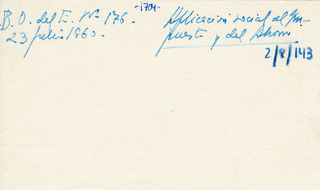 B. O. del E. Nº 176. -1701-
23 julio 1960.
Aplicación social del Im-
puesto y del Ahorro
2/8/143